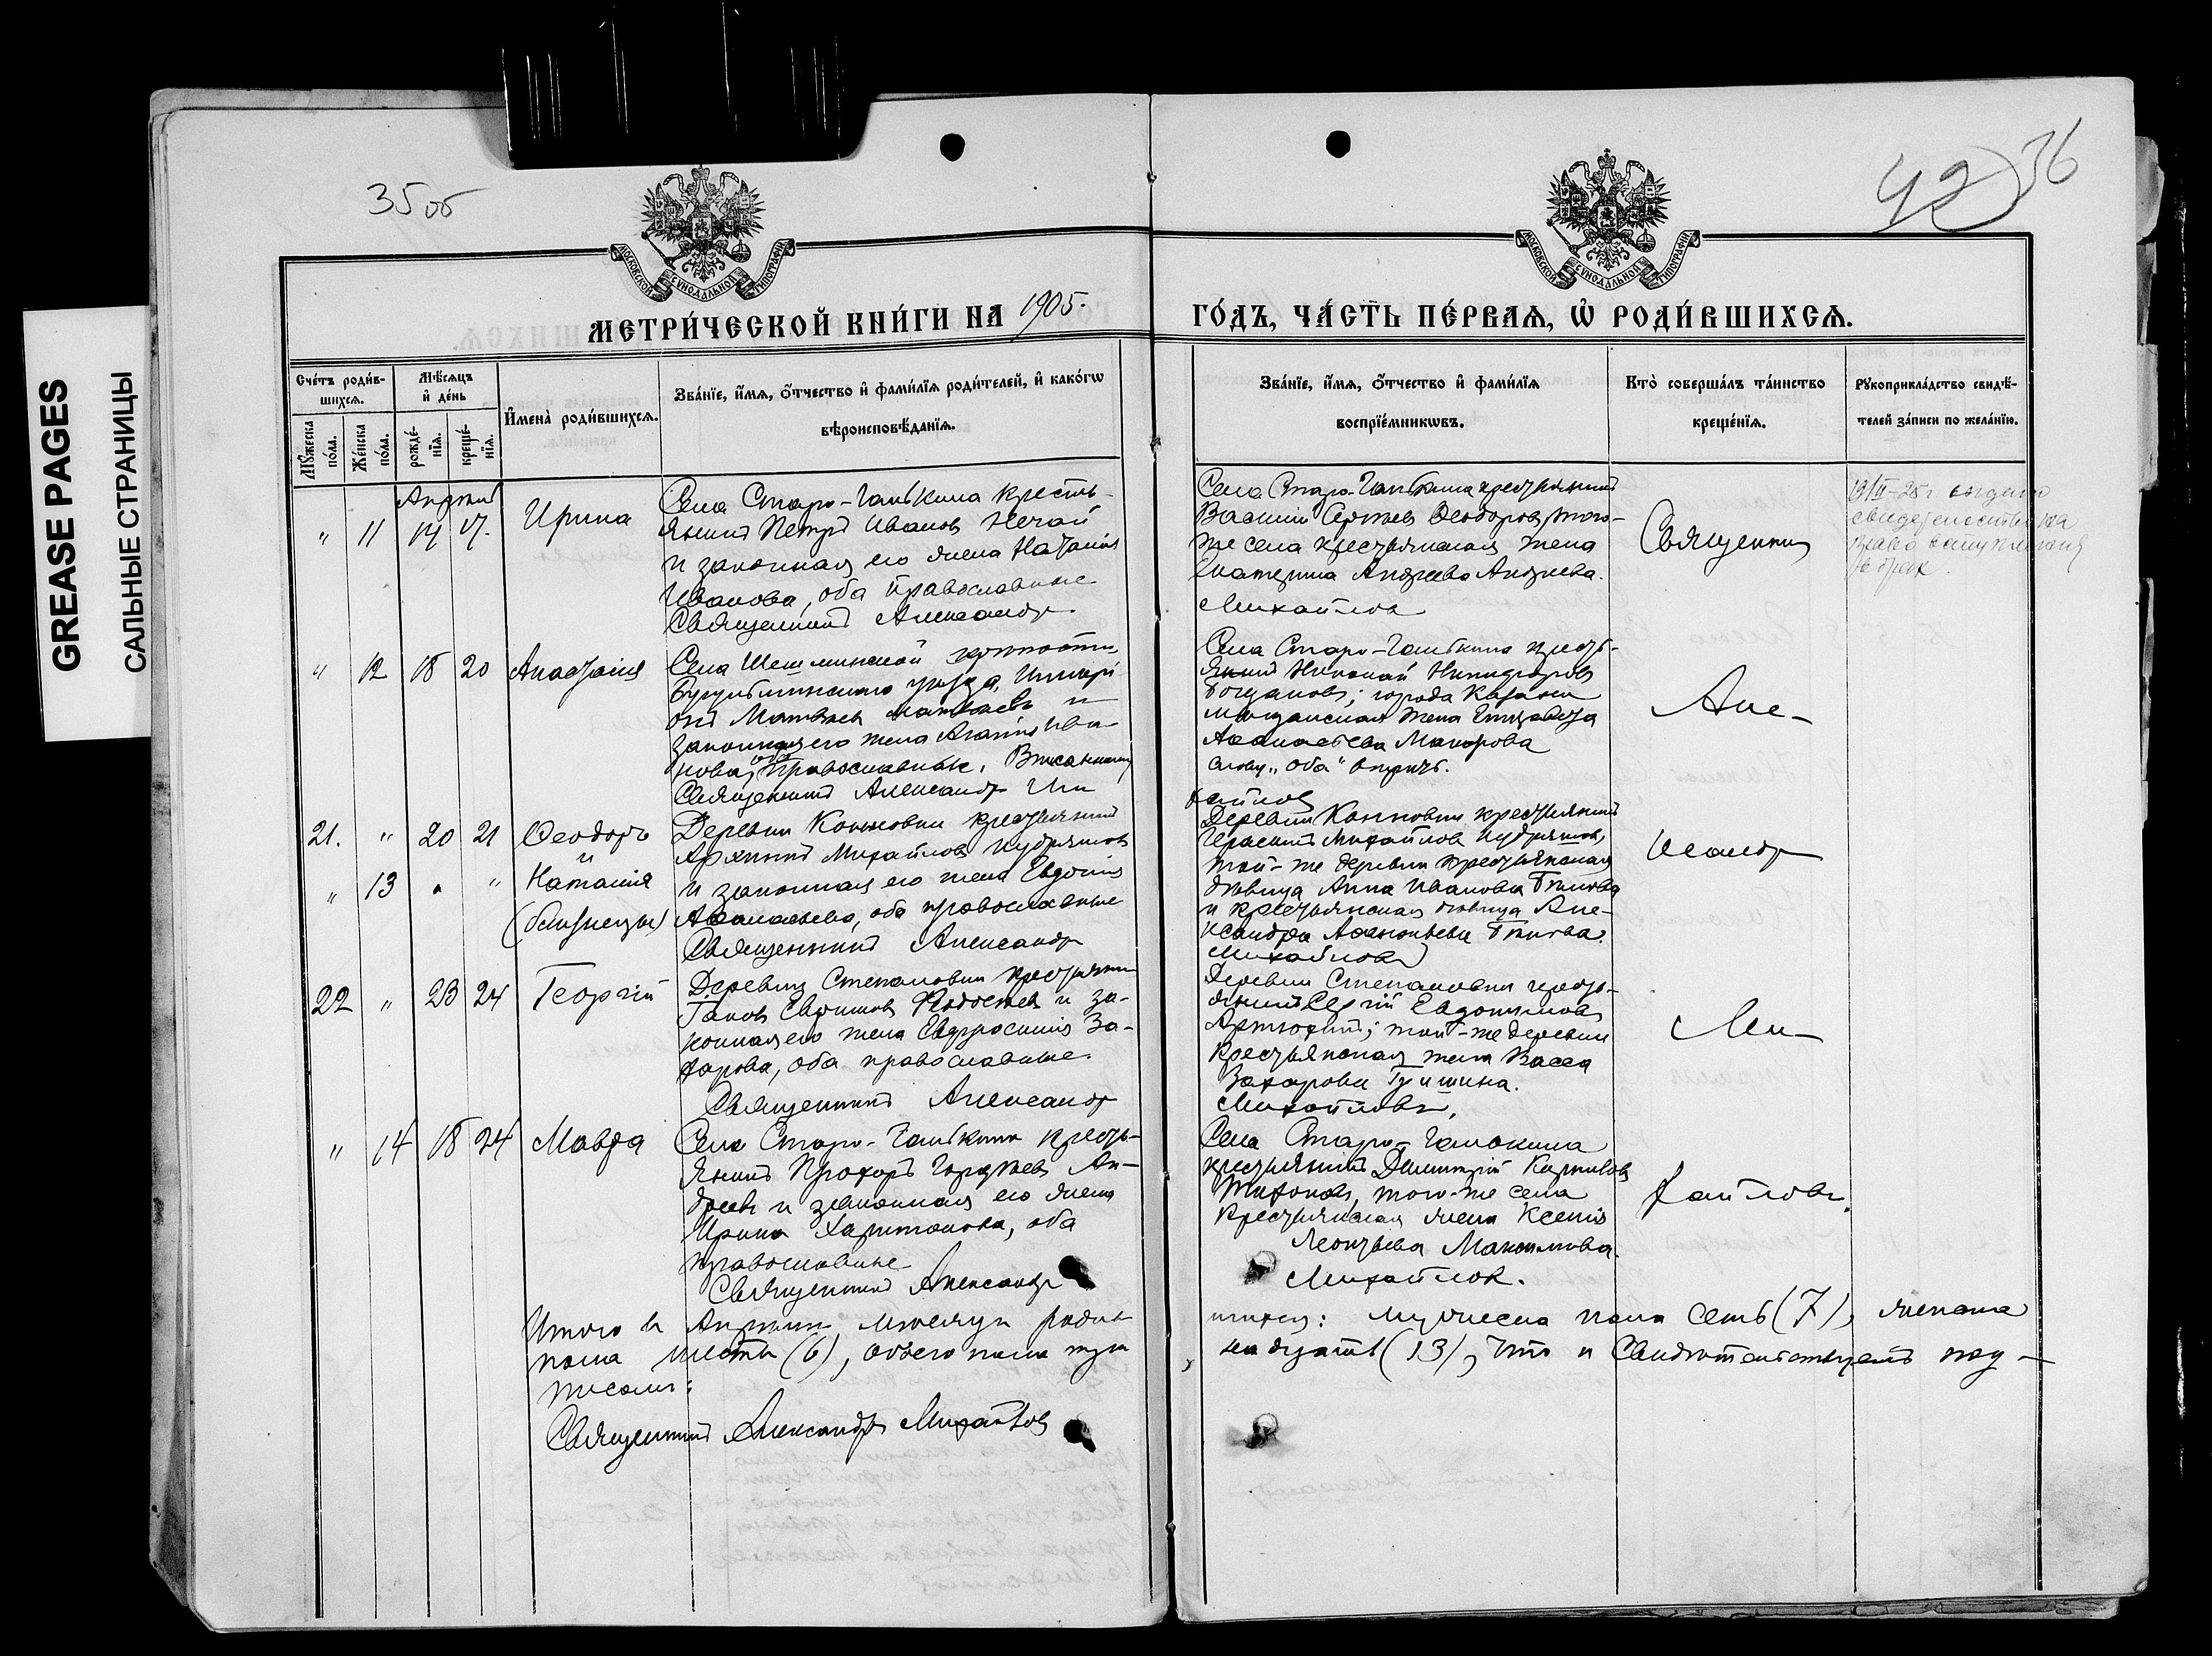 GREASE PAGES
САЛЬНЫЕ СТРАНИЦЫ
35 об
42 36
МОСКОВСКОЙ СѴНОДАЛЬНОЙ ТИПОГРАФИИ
МОСКОВСКОЙ СѴНОДАЛЬНОЙ ТИПОГРАФИИ
МЕТРИ́ЧЕСКОЙ КНИ́ГИ НА 1905.
ГО́ДЪ, ЧА́СТЬ ПЕ́РВАЯ, Ѽ РОДИ́ВШИХСЯ.
Сче́тъ роди́в-
шихся.
Мꙋ́жеска по́ла.
Же́нска по́ла.
Мѣ́сяцъ
и҆ де́нь
рожде́-
нїя.
креще́-
нїя.
И҆мена̀ роди́вшихся.
Зва́нїе, и҆́мя, ѻ҆́тчество и҆ фами́лїя роди́телей, и҆ како́гѡ
вѣроисповѣ́данїя.
Зва́нїе, и҆́мя, ѻ҆́тчество и҆ фами́лїя
воспрїе́мникѡвъ.
Кто̀ соверша́лъ та́инство
креще́нїя.
Рꙋкоприкла́дство свидѣ́-
телей за́писи по жела́нїю.
Апрѣль
" 11 14 17. Ирина
Села Старо-Ганькина кресть-
янинъ Петръ Ивановъ Нечай
и законная его жена Наталія
Иванова, оба православные
Священникъ Александр
Села Старо-Ганькина крестьянинъ
Василій Сергѣев Ѳеодоров, того-
же села крестьянская жена
Екатерина Андреева Андреева.
Михайлов
Священник
19/II-25 г. выдано
свидетельство на
право вступления
в брак
" 12 18 20 Анастасія
Села Шешминской крѣпости
Бугульминскаго уѣзда,
Матвѣевъ и
законная его жена Агаѳія Ива-
нова, оба православные.
Священникъ Александр Ми
Села Старо-Ганькина кресть-
янинъ Николай Никифоров
Богданов; города Казани
мѣщанская жена Елизавета
Аѳанасьева Макарова
слову "оба" вѣрить.
хайлов
Але-
21. " 20 21 Ѳеодоръ
и
" 13 " " Наталія
(близнецы)
Деревни Конновки крестьянинъ
Архиппъ Михайлов Кудряшов
и законная его жена Евдокія
Аѳанасьева, оба православные
Священникъ Александр
Деревни Конновки крестьянинъ
Герасимъ Михайлов Кудряшов,
той-же деревни крестьянская
дѣвица Анна Иванова
и крестьянская дѣвица Але-
ксандра Аѳанасьева
Михайлов
ксандр
22 " 23 24 Георгій
Деревни Степановки крестьянин
Іаков Евѳимов Ѳедосѣев и за-
конная его жена Евфросинія За-
харова, оба православные.
Священникъ Александр
Деревни Степановки кресть-
янинъ Сергій Евдокимов
Артюхинъ; той-же деревни
крестьянская жена Васса
Захарова Гришина.
Михайловъ.
Ми-
" 14 18 24 Мавра
Села Старо-Ганькина кресть-
янинъ Прохоръ Гордѣев Ан-
дреевъ и законная его жена
Ирина Харитонова, оба
православные
Священникъ Александр
Села Старо-Ганькина
крестьянинъ Димитрій Карпов
Тихонов, того-же села
крестьянская жена Ксенія
Леонтьева Максимова.
Михайлов.
хайловъ.
Итого в Апрѣлѣ мѣсяцѣ родив-
шихся: мужеска пола семь (7), женска
пола шесть (6), обоего пола три
надцать (13), что и свидѣтельствуетъ под-
писомъ:
Священникъ Александръ Михайлов